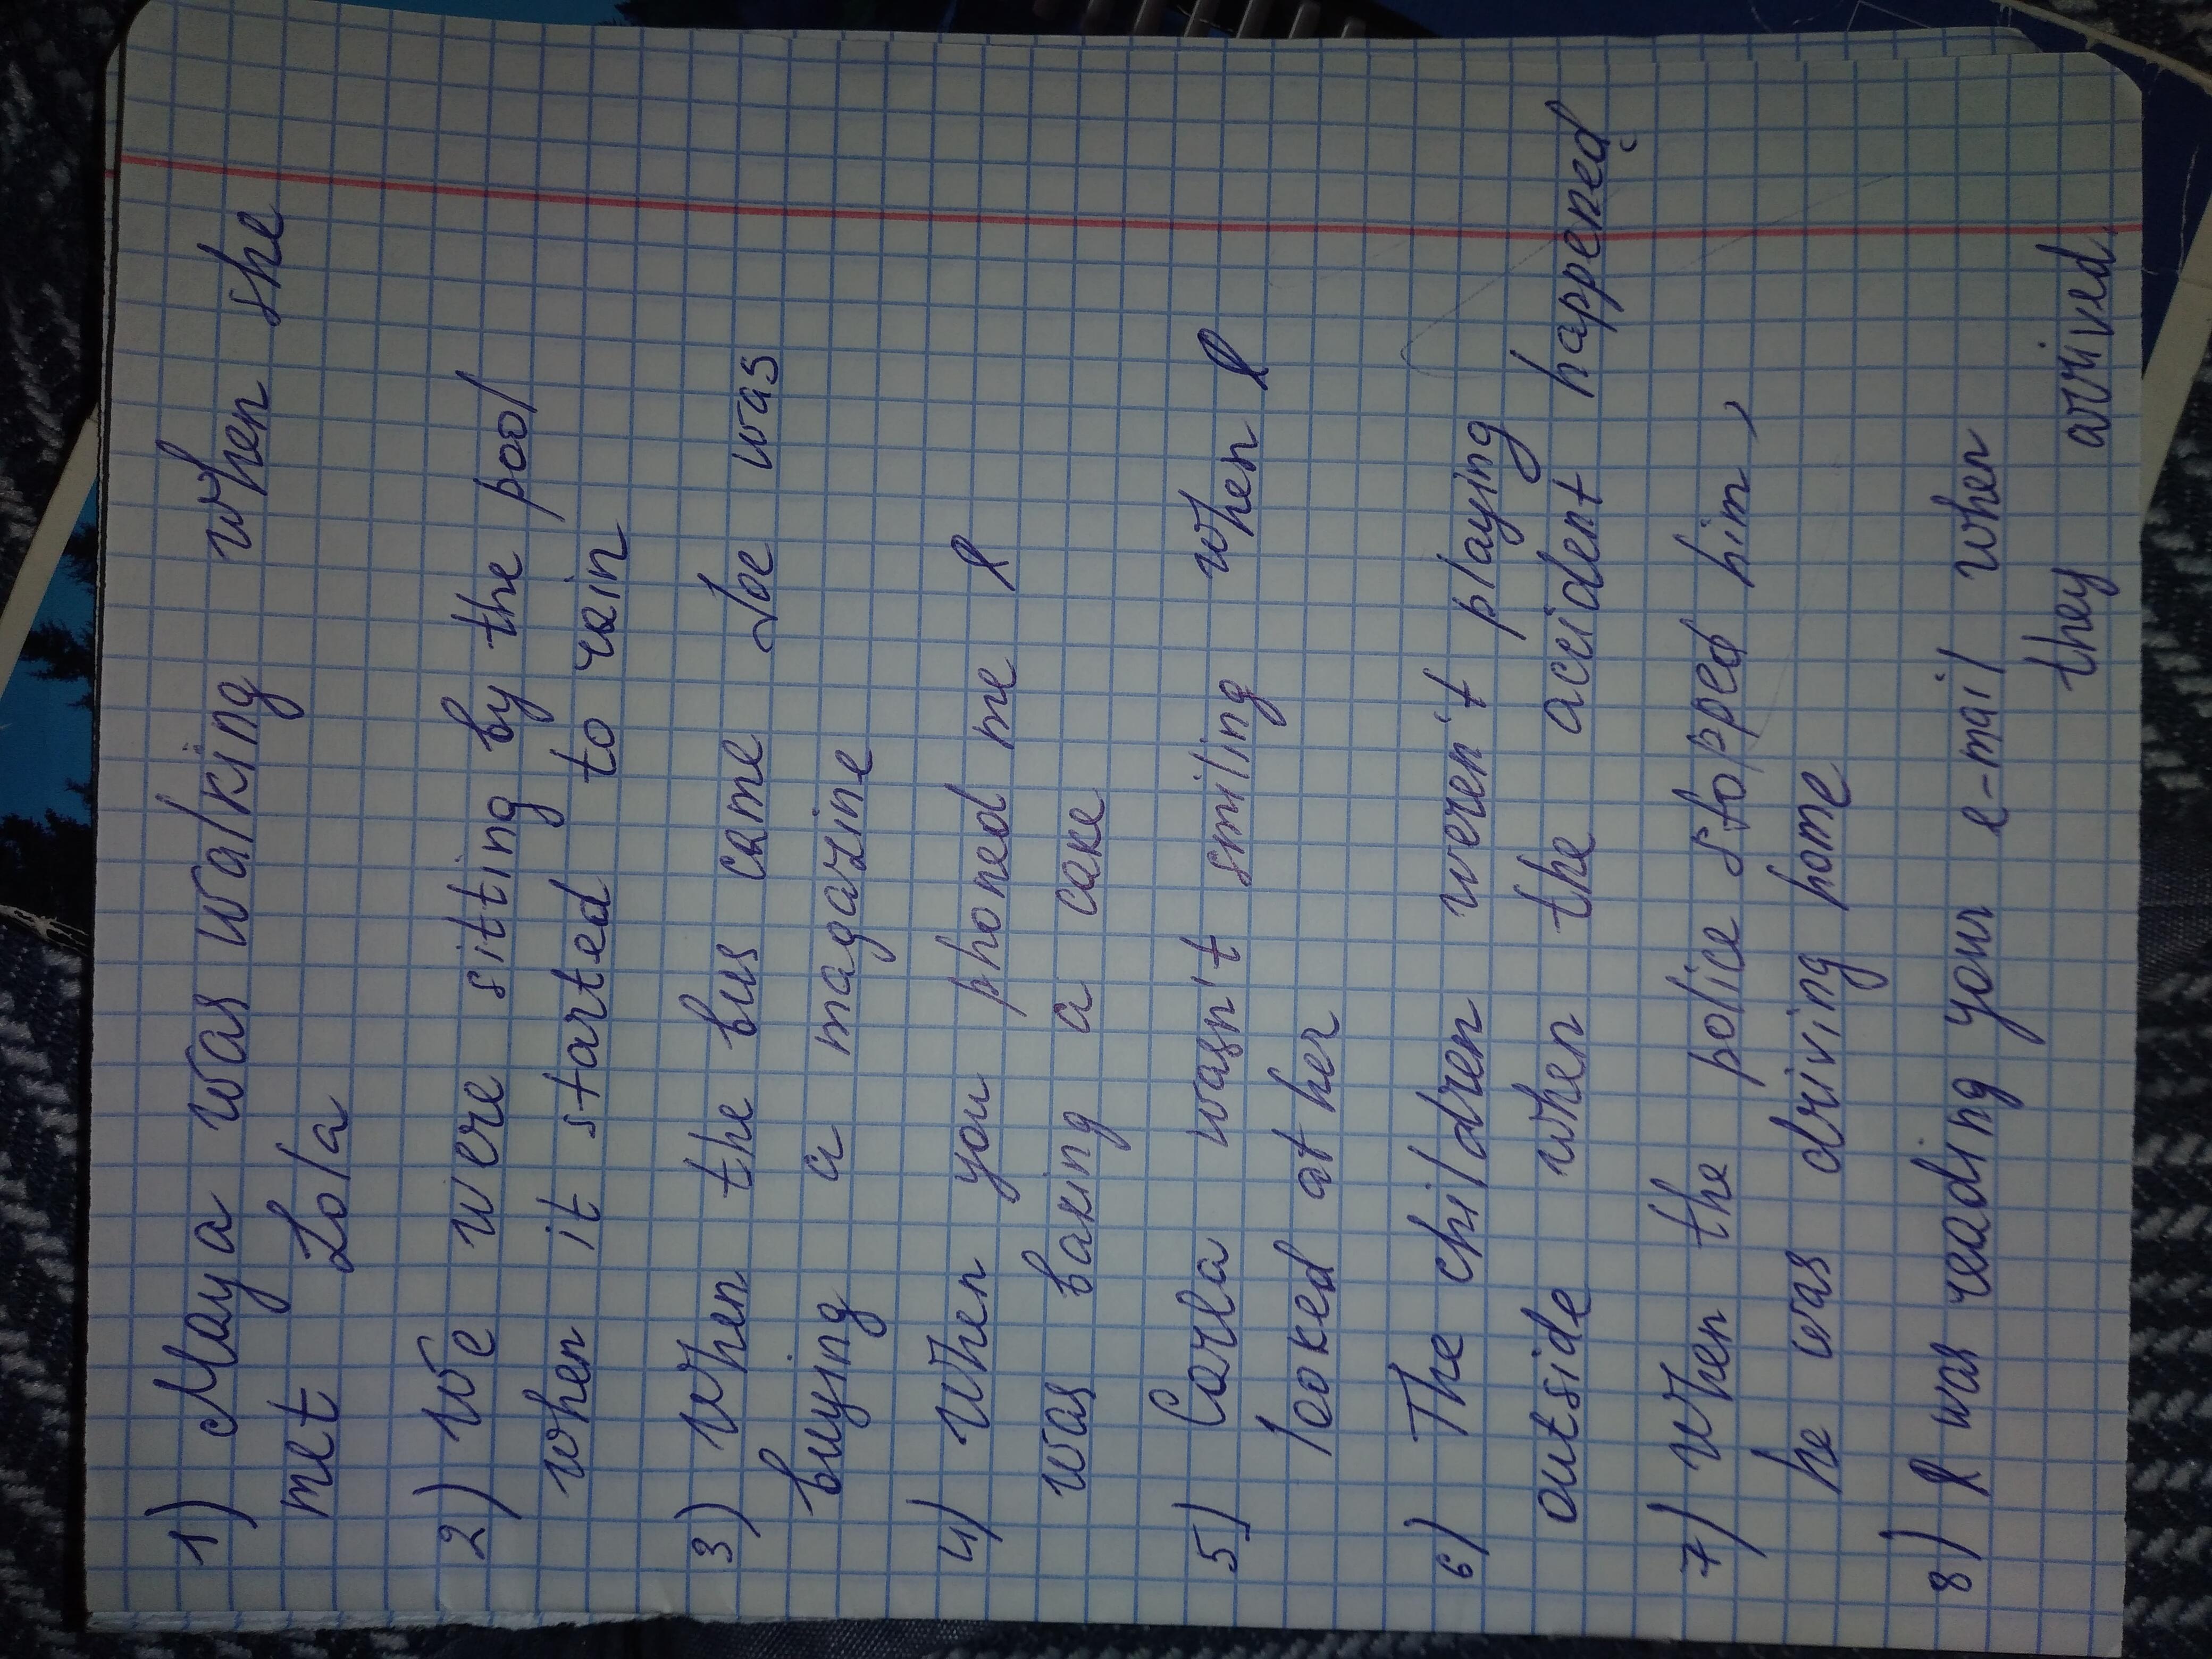 1) Maya was walking when she
met Lola
2) We were sitting by the pool
when it started to rain
3) When the bus came Joe was
buying a magazine
4) When you phoned me I
was baking a cake
5) Carla wasn't smiling when I
looked at her
6) The children weren't playing
outside when the accident happened
7) When the police stopped him,
he was driving home
8) I was reading your e-mail when
they arrived